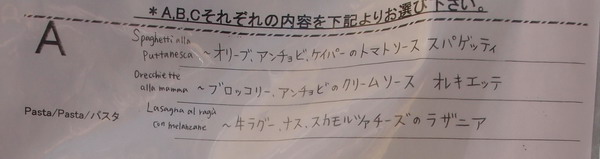 ＊A,B,Cそれぞれの内容を下記よりお選び下さい。
A
Spaghetti alla
Puttanesca ～オリーブ、アンチョビ、ケイパーのトマトソース スパゲッティ
Orecchiette
alla mamma ～ブロッコリー、アンチョビのクリームソース オレキエッテ
Pasta/Pasta/パスタ
Lasagna al ragù
con melanzane ～牛ラグー、ナス、スカモルツァチーズのラザニア